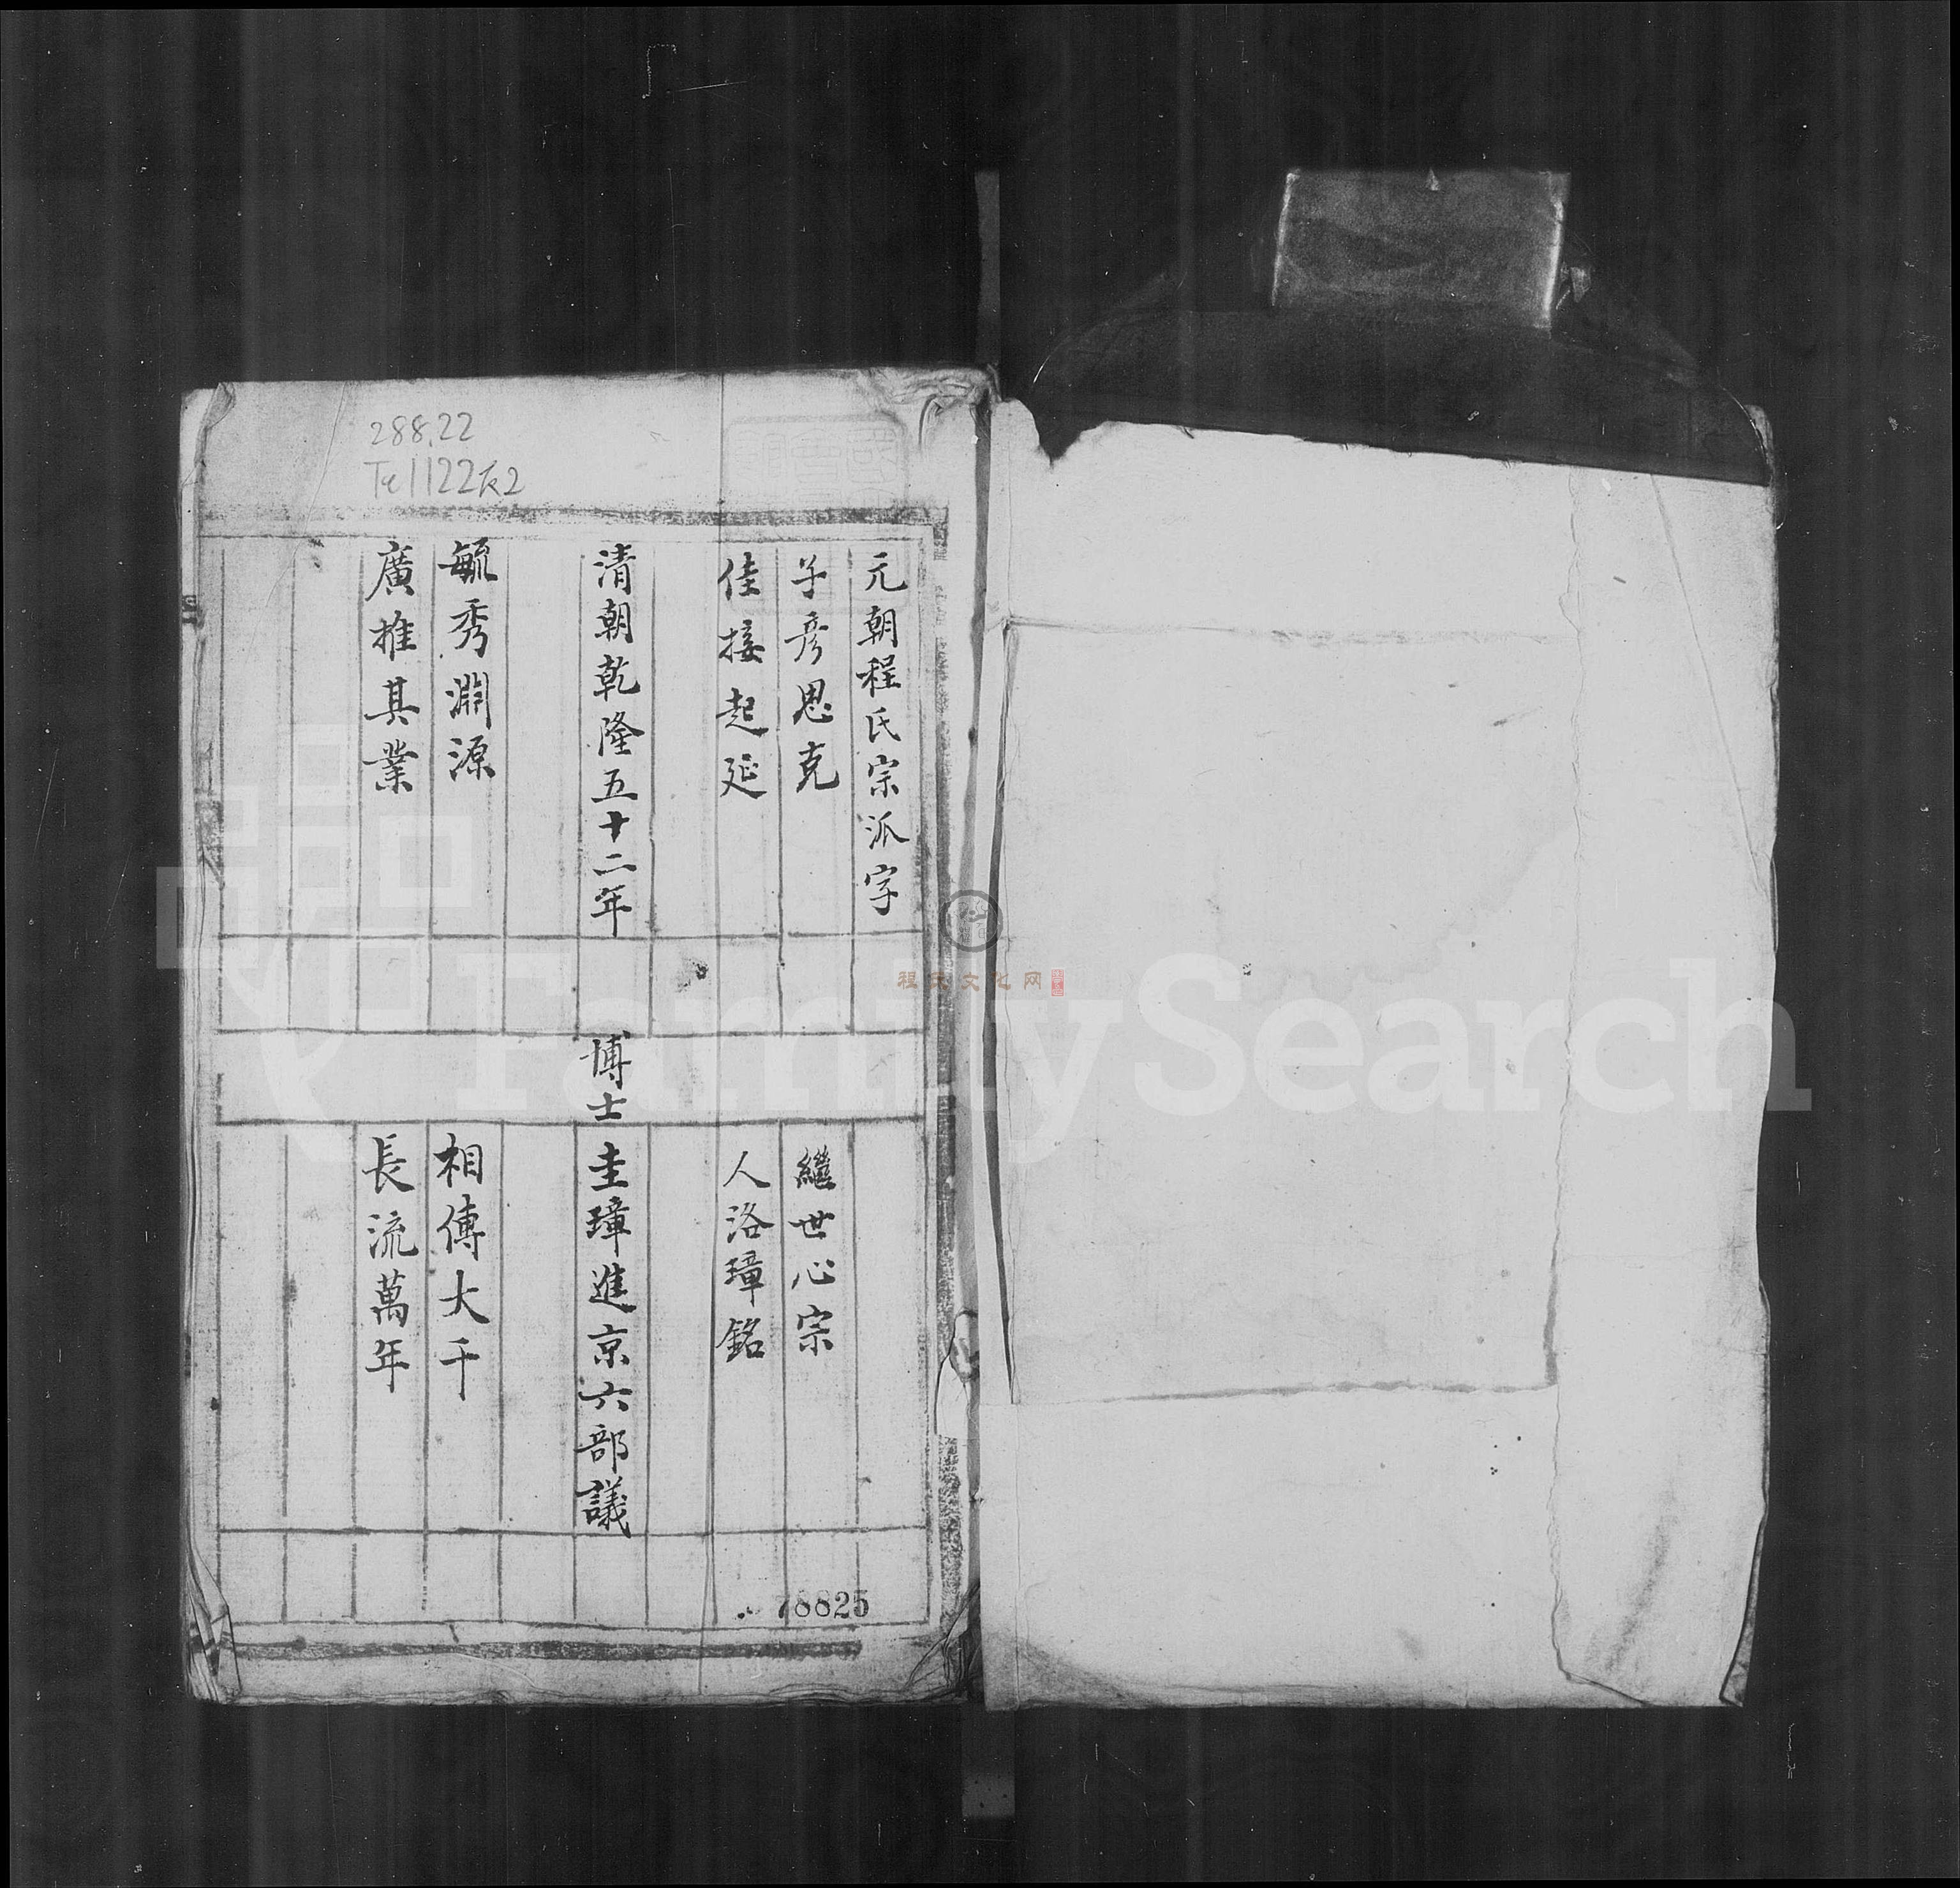 288.22
元朝程氏宗派字
子彦思克 繼世心宗
佳接起延 人洛璋銘
清朝乾隆五十二年 博士 圭璋進京六部議
毓秀淵源 相傳大千
廣推其業 長流萬年
78825
程氏文化网
FamilySearch